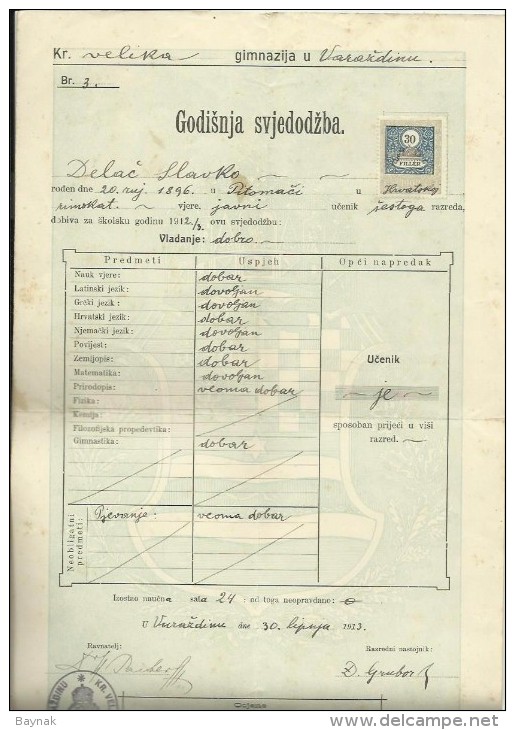 Kr. velika gimnazija u Varaždinu.
Br. 3.
Godišnja svjedodžba.
30
FILLÉR
Delač Slavko
rođen dne 20. ruj. 1896. u Pitomači u Hrvatskoj
rimokat. vjere, javni učenik šestoga razreda,
dobiva za školsku godinu 1912/3. ovu svjedodžbu:
Vladanje: dobro.
Predmeti Uspjeh Opći napredak
Nauk vjere: dobar
Latinski jezik: dovoljan
Grčki jezik: dovoljan
Hrvatski jezik: dobar
Njemački jezik: dovoljan
Povijest: dobar
Zemljopis: dobar
Matematika: dovoljan
Prirodopis: veoma dobar
Fizika:
Kemija:
Filozofijska propedevtika:
Gimnastika: dobar
Učenik
je
sposoban prijeći u viši
razred.
Neobligatni predmeti:
Pjevanje: veoma dobar
Izostao naučna sata 24; od toga neopravdano: 0
U Varaždinu dne 30. lipnja 1913.
Ravnatelj: Razredni nastojnik:
Đ. Grubor
KR. VEL
Ocjene
Baynak
delcampe.net